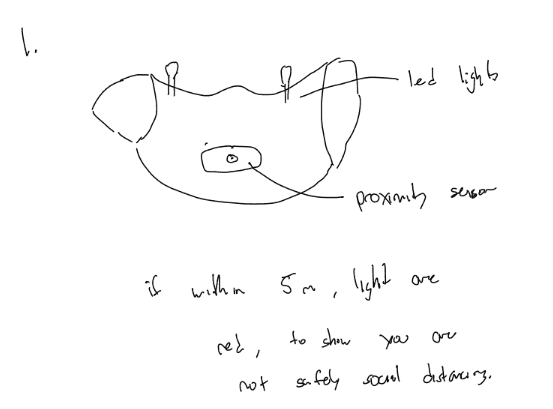 1.
led lights
proximity sensor
if within 5m, light are
red, to show you are
not safely social distancing.